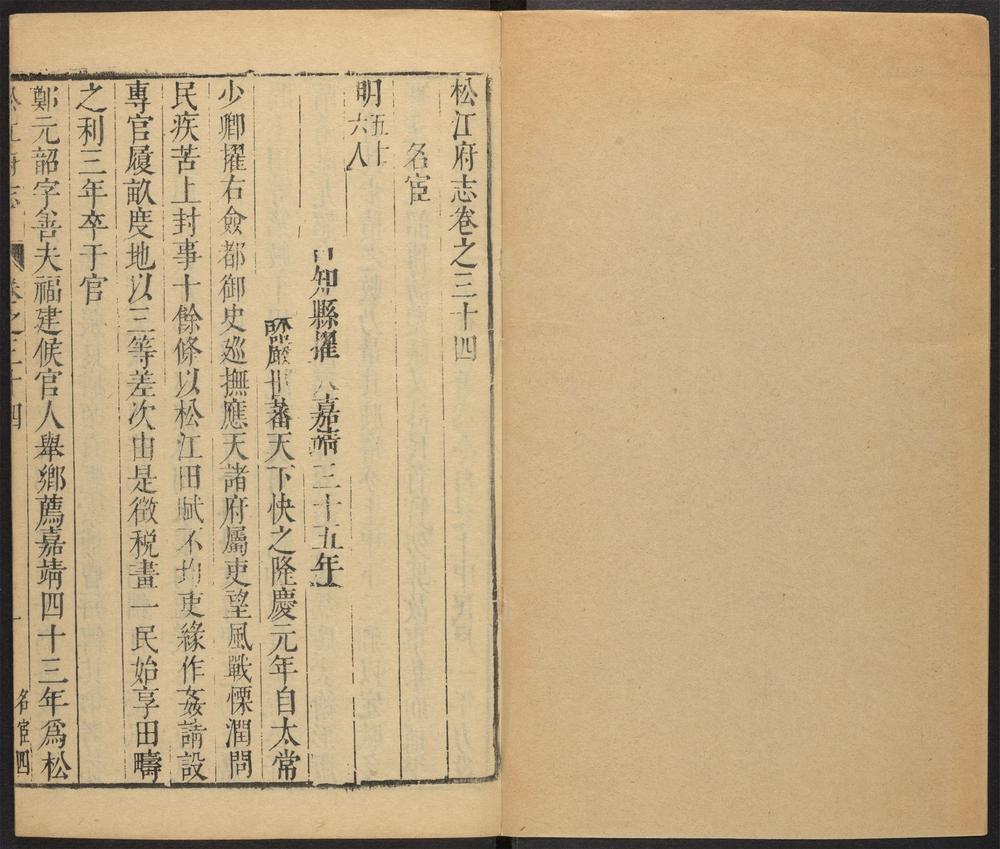 松江府志卷之三十四
名宦
明五十六人
知縣擢 嘉靖三十五年
嚴世蕃天下快之隆慶元年自太常
少卿擢右僉都御史廵撫應天諸府屬吏望風戰慄潤問
民疾苦上封事十餘條以松江田賦不均吏緣作姦請設
專官履畝度地以三等差次由是徵税畫一民始享田疇
之利三年卒于官
鄭元韶字善夫福建候官人舉鄉薦嘉靖四十三年爲松
松江府志 卷之三十四 一 名宦四